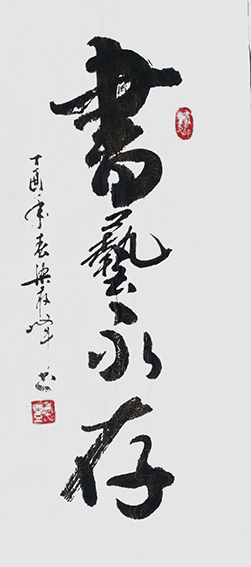 書藝永存
丁酉年春梁 書